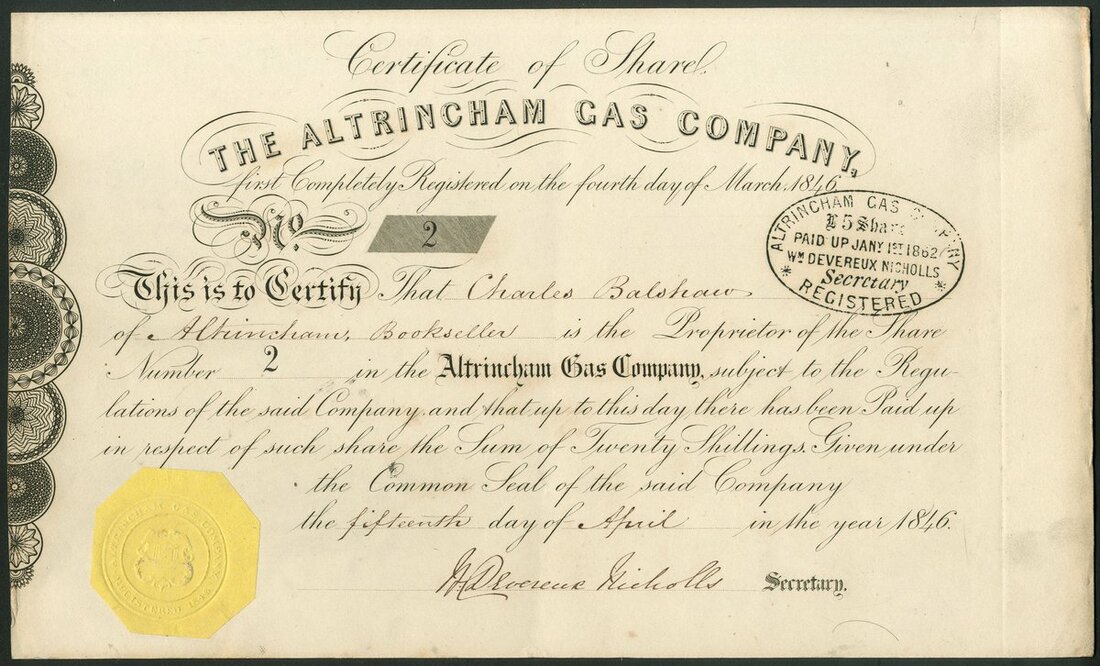 Certificate of Share.
THE ALTRINCHAM GAS COMPANY,
first Completely Registered on the fourth day of March, 1846.
No. 2
ALTRINCHAM GAS COMPANY
£5 Share
PAID UP JANY 1ST 1862
WM DEVEREUX NICHOLLS
Secretary
* REGISTERED *
This is to Certify That Charles Balshaw
of Altrincham, Bookseller is the Proprietor of the Share
Number 2 in the Altrincham Gas Company, subject to the Regu-
lations of the said Company, and that up to this day there has been Paid up
in respect of such share the Sum of Twenty Shillings. Given under
the Common Seal of the said Company
the fifteenth day of April in the year 1846.
W. Devereux Nicholls Secretary.
ALTRINCHAM GAS COMPANY
REGISTERED 1846